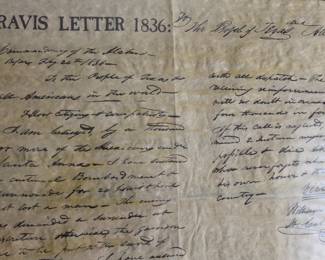 RAVIS LETTER 1836:
The People of Texas
Commandancy of the Alamo
Feby 24th 1836
To the People of Texas &
all Americans in the world
Fellow citizens & compatriots
I am besieged by a thousand
or more of the Mexicans under
Santa Anna — I have
continual Bombardment &
cannonade for 24 hours & have
lost a man — The enemy
has demanded a surrender at
discretion otherwise the garrison
are to be put to the sword if
I have answered
with all dispatch — The
receiving reinforcements
will no doubt increase
four thousand in four
this call is neglected
mined to sustain myself
possible & die like
who never forgets what
his own honor & that
country —